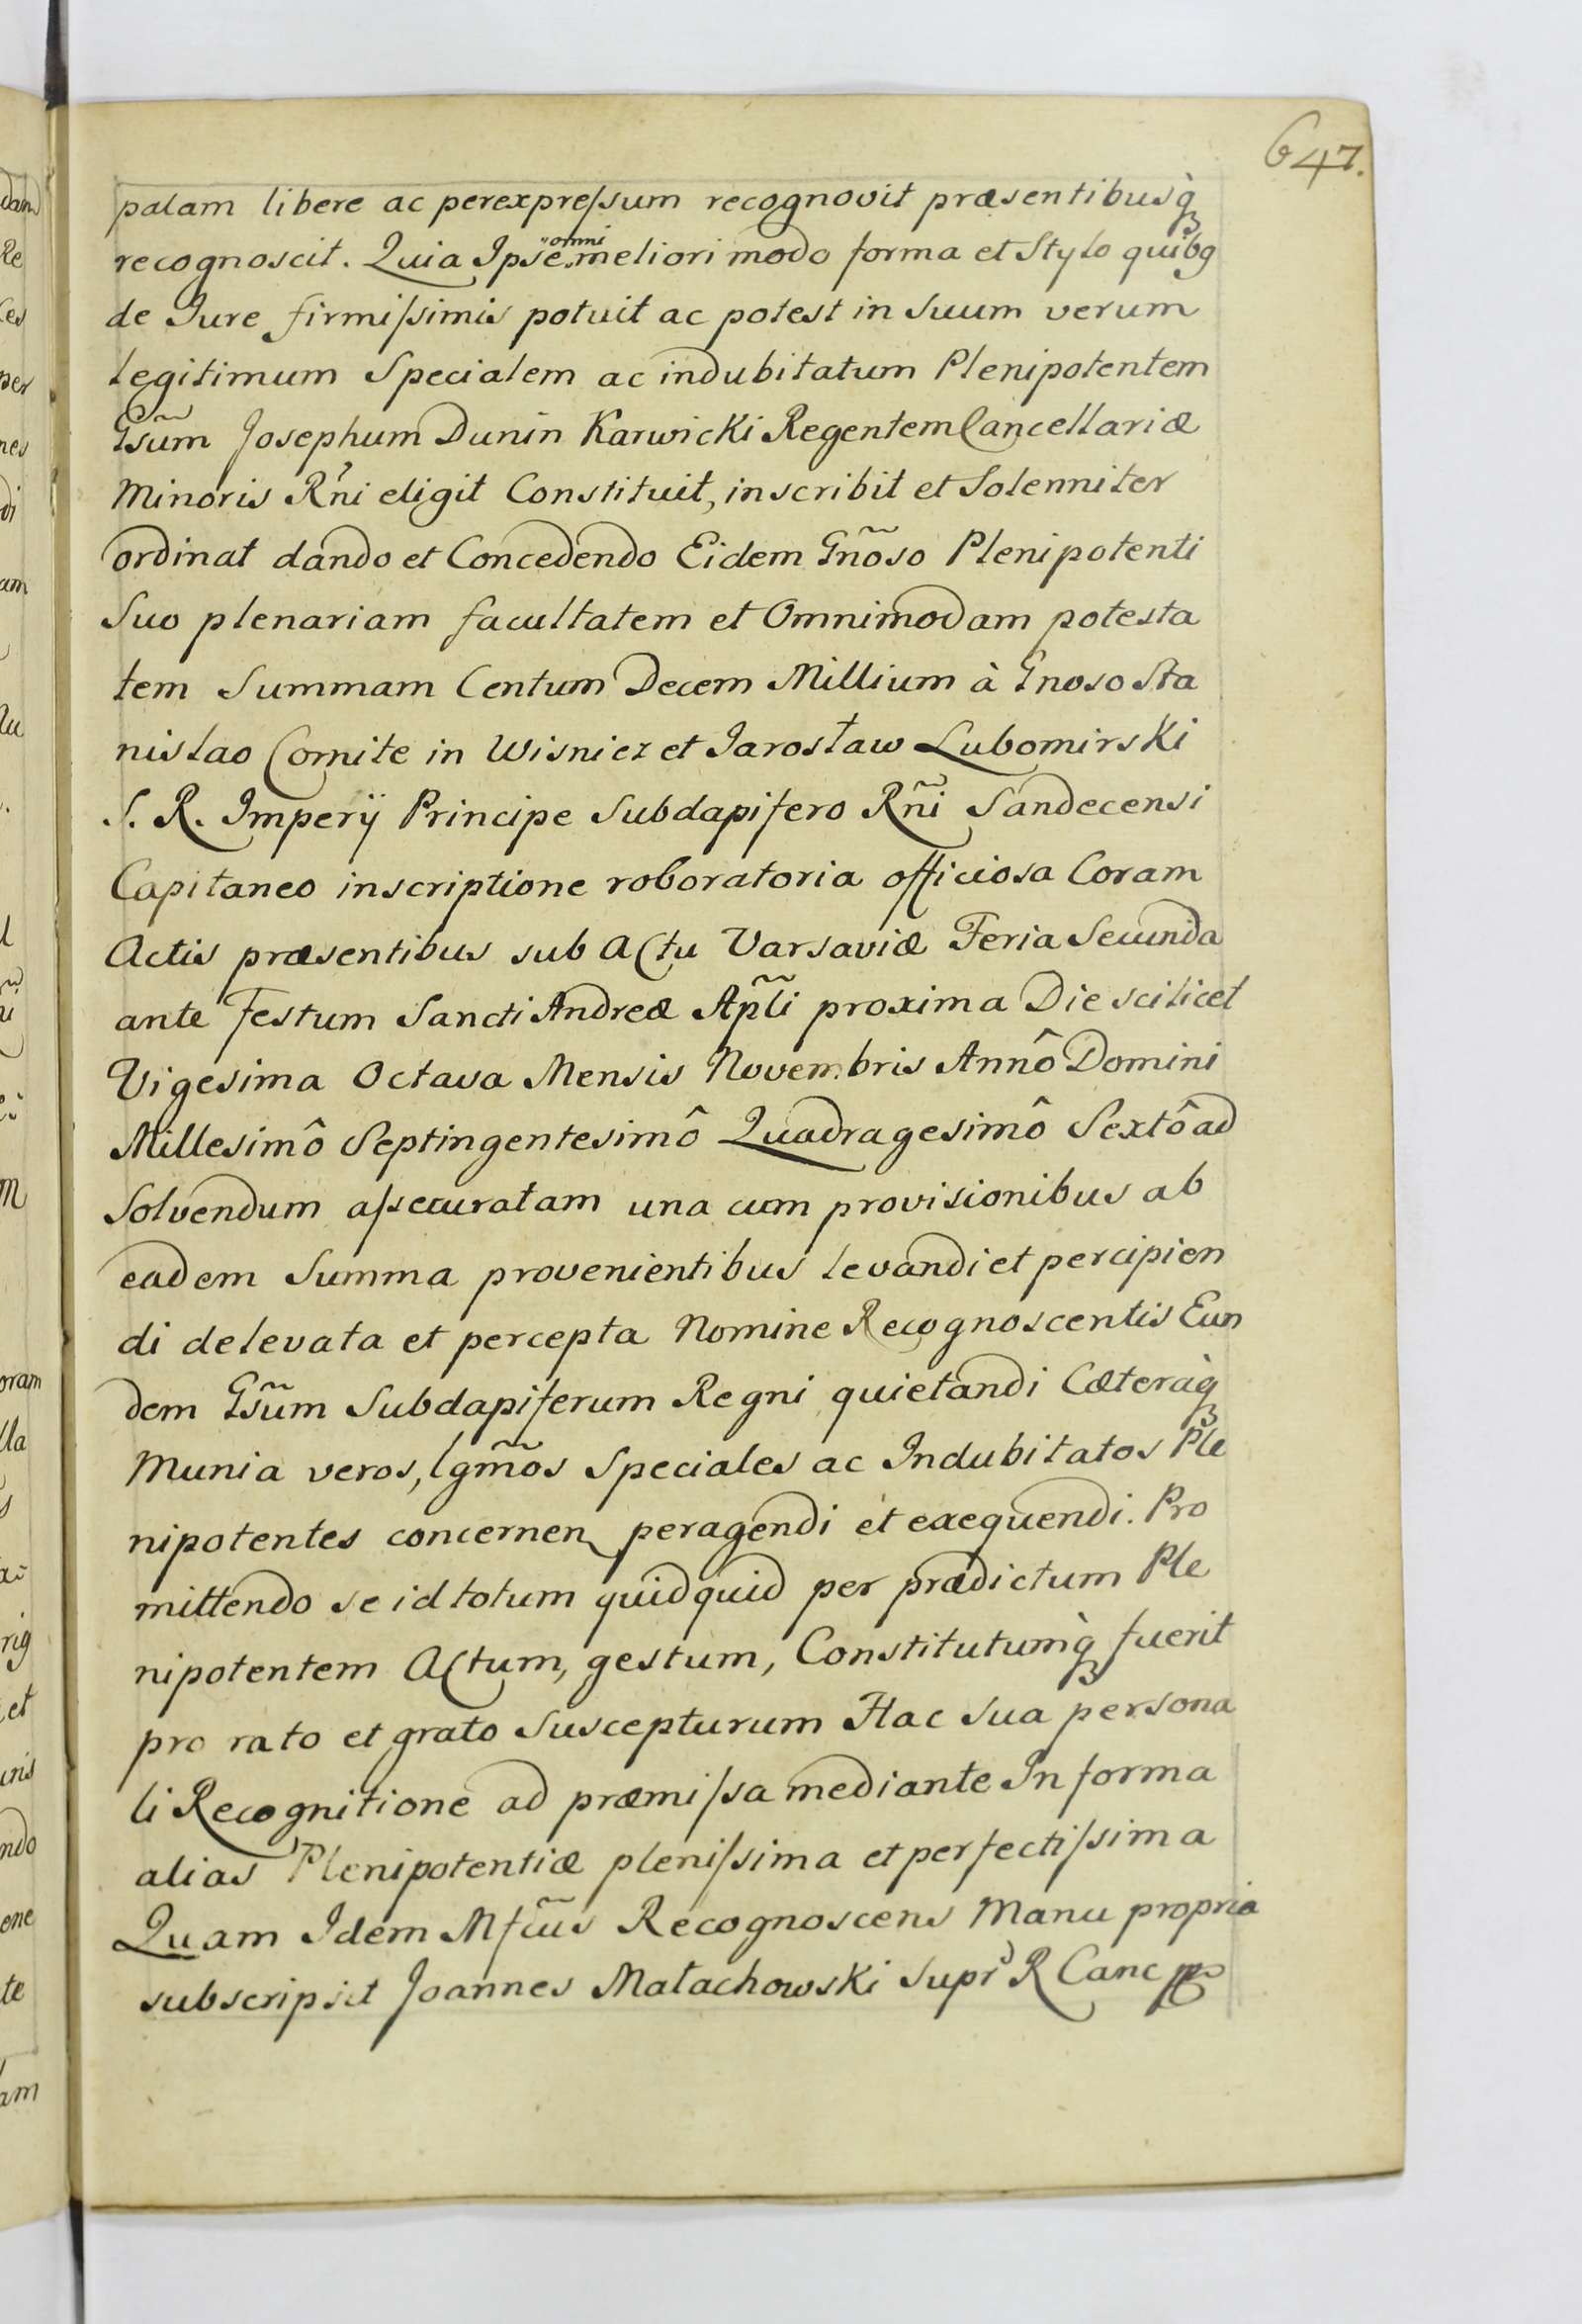 647.
palam libere ac perexpreſsum recognovit præsentibusq̀
recognoscit. Quia Ipse omni meliori modo forma et Stylo quibg
de Iure firmiſsimis potuit ac potest in Suum verum
legitimum Specialem ac indubitatum Plenipotentem
Gsũm Josephum Dunin Karwicki Regentem Cancellariæ
Minoris Rñi eligit Constituit, inscribit et Solenniter
ordinat dando et Concedendo Eidem Gñoso Plenipotenti
Suo plenariam facultatem et Omnimodam potesta
tem Summam Centum Decem Millium à Gnoso Sta
nislao Comite in Wisnicz et Jarosław Lubomirski
S. R. Imperÿ Principe Subdapifero Rñi Sandecensi
Capitaneo inscriptione roboratoria officiosa Coram
Actis præsentibus sub Actu Varsaviæ Feria Secunda
ante Festum Sancti Andreæ Apl̃i proxima Die scilicet
Vigesima Octava Mensis Novembris Annô Domini
Millesimô Septingentesimô Quadragesimô Sextô ad
Solvendum aſsecuratam una cum provisionibus ab
eadem Summa provenientibus levandi et percipien
di de levata et percepta Nomine Recognoscentis Eun
dem Gsũm Subdapiferum Regni quietandi Cæteraq̀
Munia veros, lgm̃os Speciales ac Indubitatos Ple
nipotentes concernen peragendi et exequendi. Pro
mittendo se id totum quidquid per prædictum Ple
nipotentem Actum, gestum, Constitutumq̀ fuerit
pro rato et grato Suscepturum Hac Sua persona
li Recognitione ad præmiſsa mediante In forma
alias Plenipotentiæ pleniſsima et perfectiſsima
Quam Idem Mfcũs Recognoscens Manu propria
subscripsit Joannes Małachowski Supr R Canc